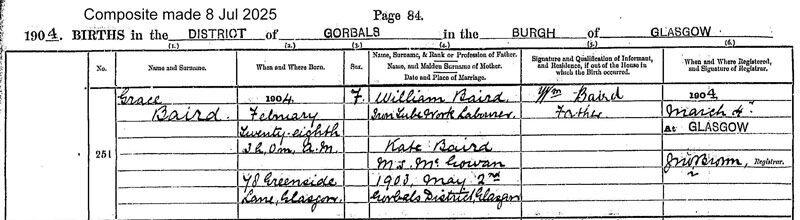 Composite made 8 Jul 2025
Page 84.
1904. BIRTHS in the DISTRICT of GORBALS in the BURGH of GLASGOW
(1.) (2.) (3.) (4.) (5.) (6.)
No. Name and Surname. When and Where Born. Sex. Name, Surname, & Rank or Profession of Father. Name, and Maiden Surname of Mother. Date and Place of Marriage. Signature and Qualification of Informant, and Residence, if out of the House in which the Birth occurred. When and Where Registered, and Signature of Registrar.
Grace 1904 F. William Baird Wm Baird 1904
Baird. February Iron Tube Work Labourer Father March 4th
Twenty-eighth At GLASGOW
251 3h. 0m. A.M. Kate Baird
M.S. McGowan Jno Brown, Registrar.
78 Greenside 1903, May 2nd
Lane, Glasgow. Gorbals District, Glasgow